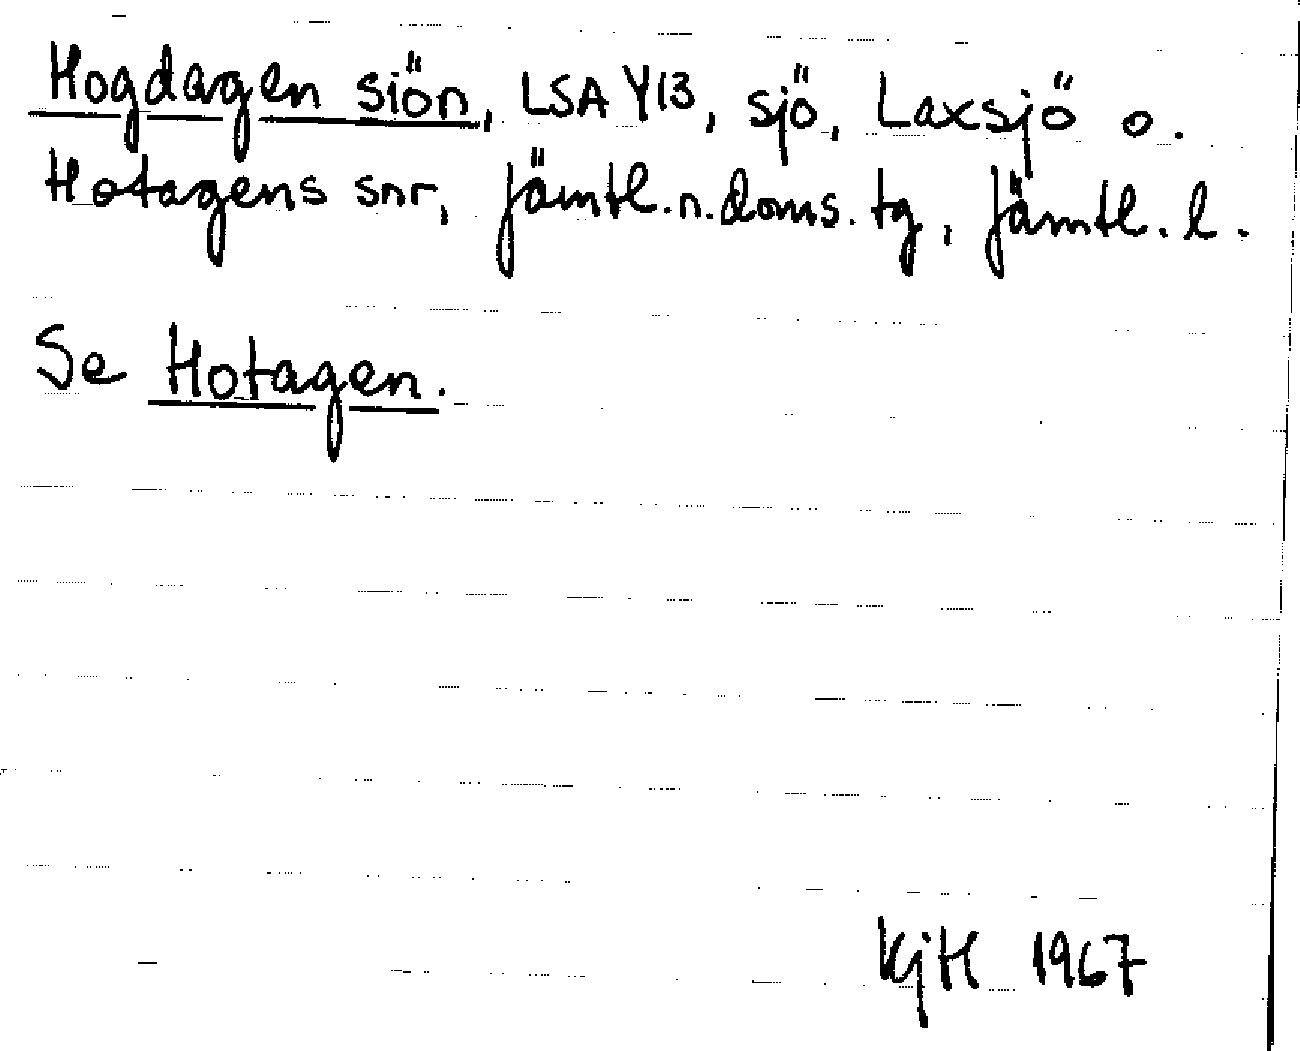 Hogdagen siön, LSA Y13, sjö, Laxsjö o.
Hotagens snr, Jämtl. n. doms. tg, Jämtl. l.
Se Hotagen.
KjH 1967